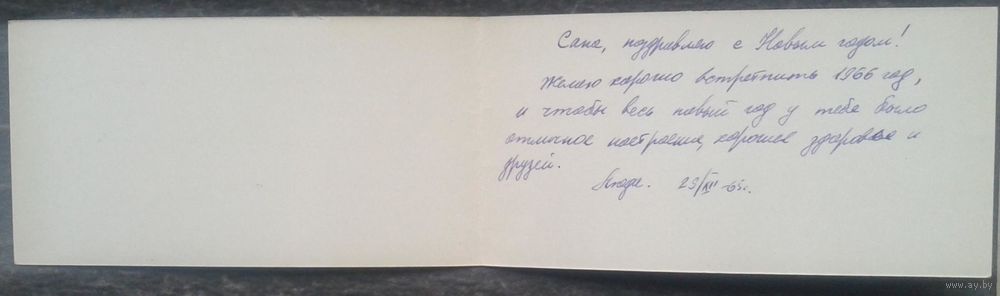 Сана, поздравляю с Новым годом!
Желаю хорошо встретить 1966 год,
и чтобы весь новый год у тебя было
отличное настроение, хорошее здоровье и
друзей.
Люда. 29/XII-65г.
www.ay.by